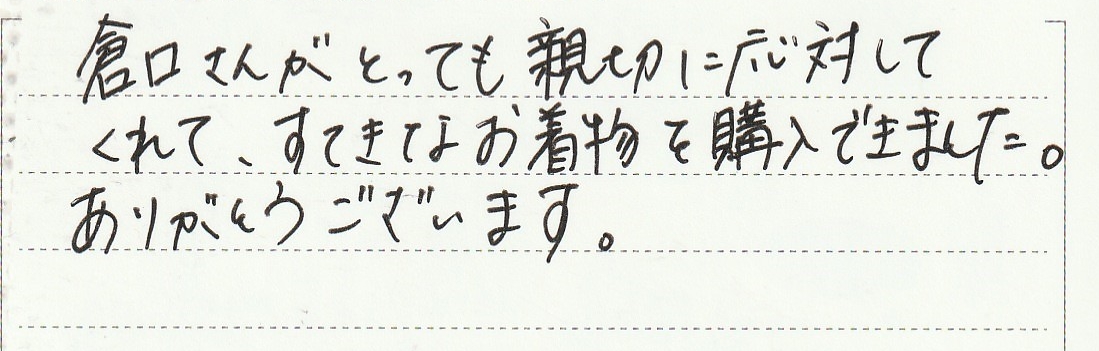 倉口さんがとっても親切に応対して
くれて、すてきなお着物を購入できました。
ありがとうございます。